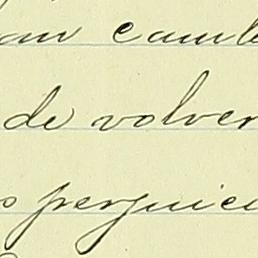 an cam
de volver
perjuic